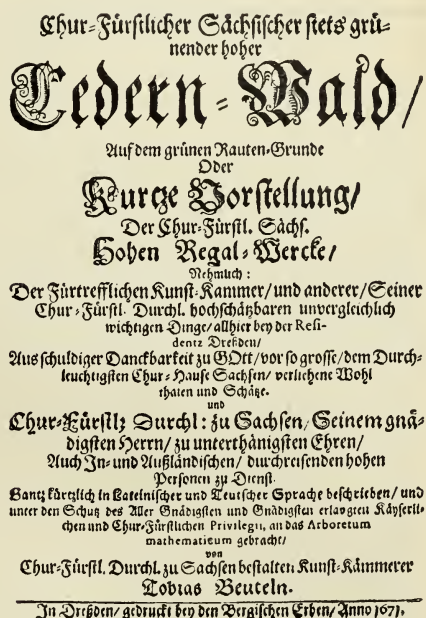 Chur-Fürstlicher Sächsischer stets grü-
nender hoher
Cedern-Wald/
Auf dem grünen Rauten-Grunde
Oder
Kurtze Vorstellung/
Der Chur-Fürstl. Sächs.
Hohen Regal-Wercke/
Nehmlich:
Der Fürtrefflichen Kunst-Kammer/ und anderer/ Seiner
Chur-Fürstl. Durchl. hochschätzbaren unvergleichlich
wichtigen Dinge/ allhier bey der Resi-
dentz Dreßden/
Aus schuldiger Danckbarkeit zu GOtt/ vor so grosse/ dem Durch-
leuchtigsten Chur-Hause Sachsen/ verliehene Wohl
thaten und Schätze.
und
Chur-Fürstl: Durchl: zu Sachsen/ Seinem gnä-
digsten Herrn/ zu unterthänigsten Ehren/
Auch In- und Außländischen/ durchreisenden hohen
Personen zu Dienst.
Gantz kürtzlich in Lateinischer und Teutscher Sprache beschrieben/ und
unter den Schutz des Aller Gnädigsten und Gnädigsten erlangten Käyserli-
chen und Chur-Fürstlichen Privilegii, an das Arboretum
mathematicum gebracht/
von
Chur-Fürstl. Durchl. zu Sachsen bestalten Kunst-Kämmerer
Tobias Beuteln.
In Dreßden/ gedruckt bey den Bergischen Erben/ Anno 1671.